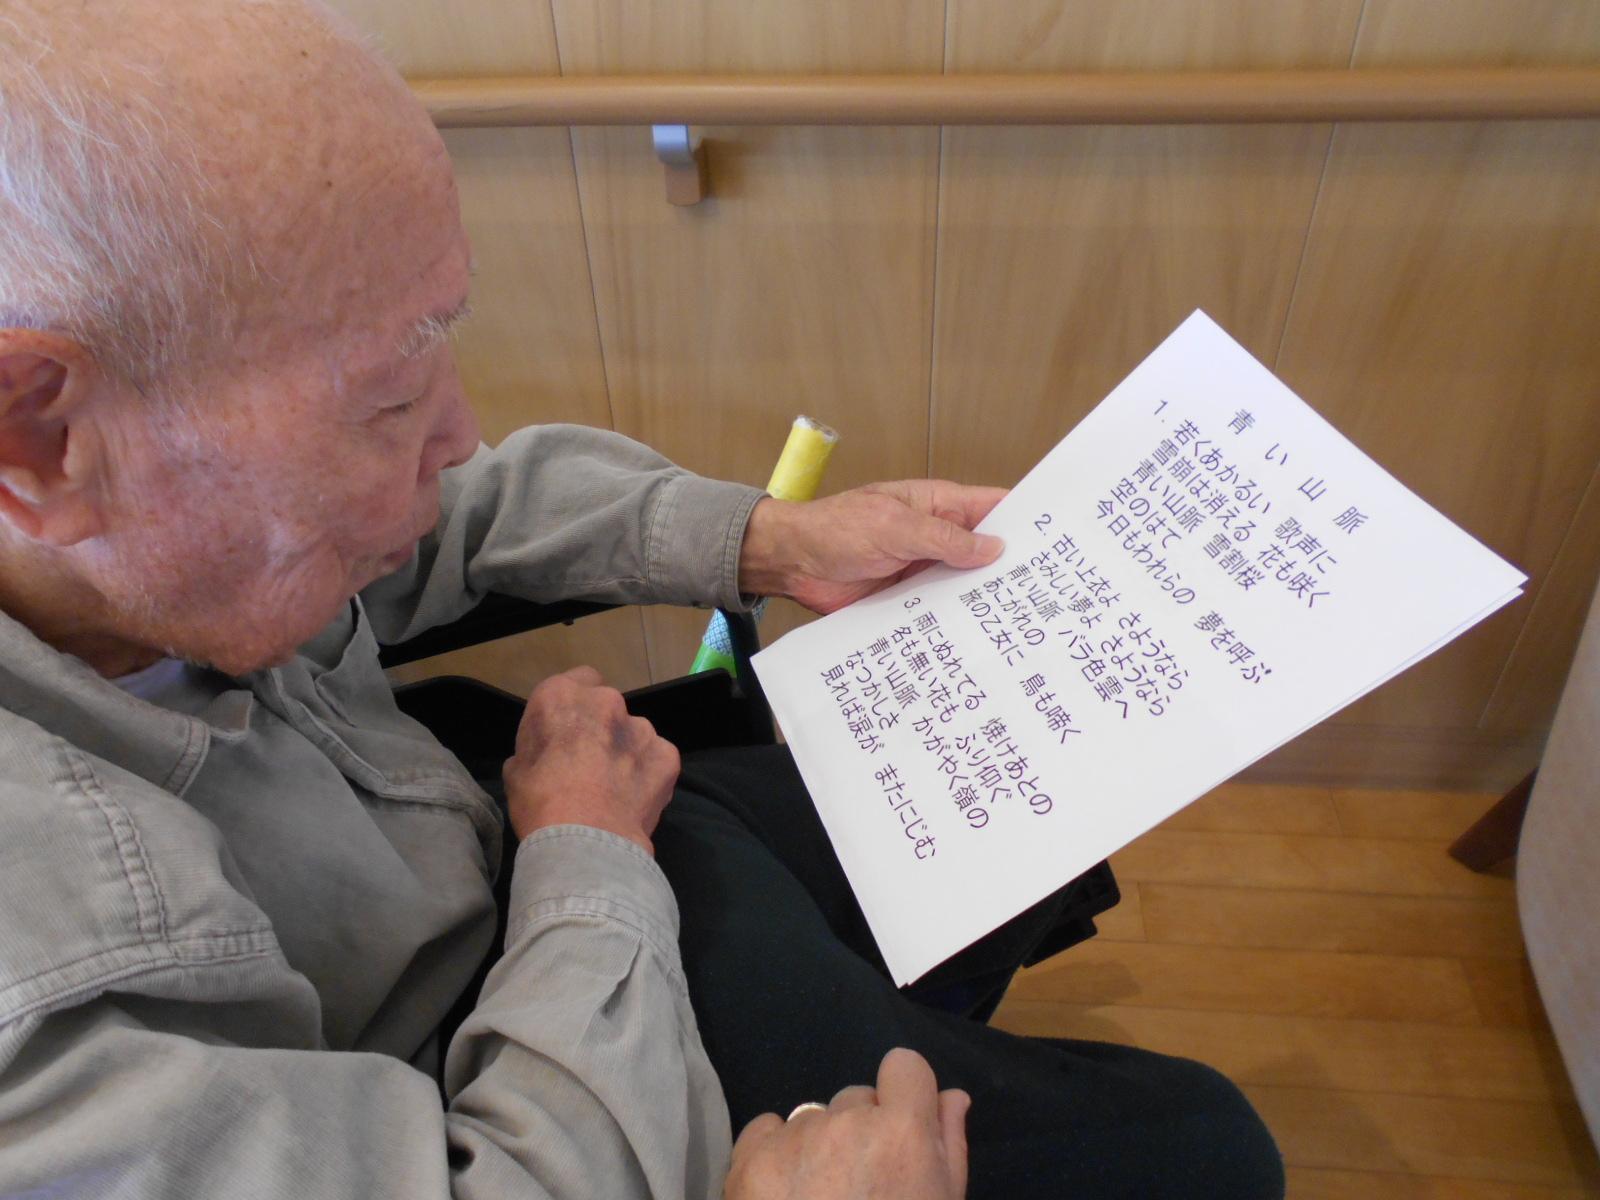 青い山脈
1. 若くあかるい 歌声に
雪崩は消える 花も咲く
青い山脈 雪割桜
空のはて
今日もわれらの 夢を呼ぶ
2. 古い上衣よ さようなら
さみしい夢よ さようなら
青い山脈 バラ色雲へ
あこがれの
旅の乙女に 鳥も啼く
3 雨にぬれてる 焼けあとの
名も無い花も ふり仰ぐ
青い山脈 かがやく嶺の
なつかしさ
見れば涙が またにじむ